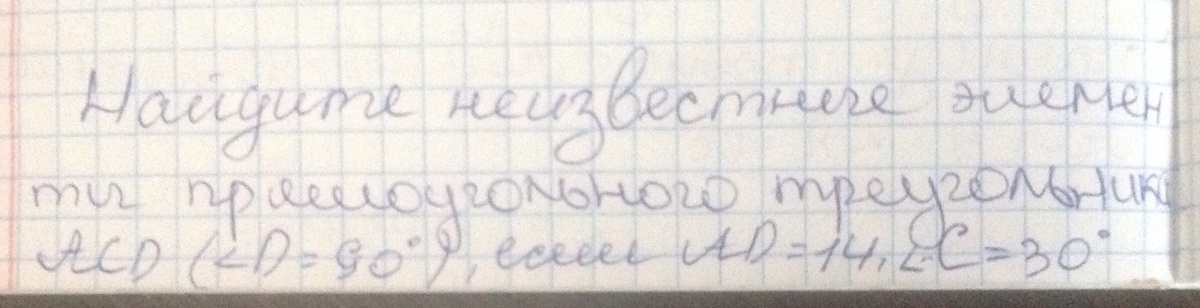 Найдите неизвестные элемен
ты прямоугольного треугольника
ACD (∠D=90°), если AD=14, ∠C=30°